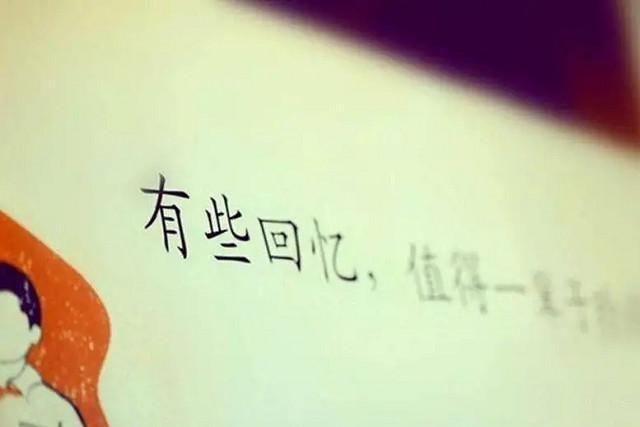 有些回忆，值得一辈子